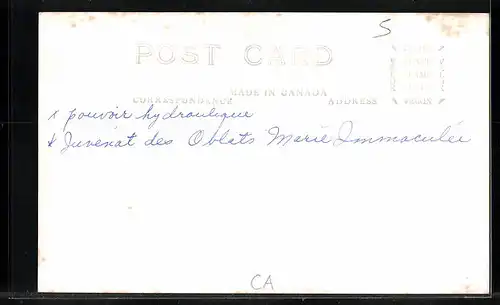 5
POST CARD
MADE IN CANADA
CORRESPONDANCE ADDRESS
x pouvoir hydraulique
x Juvénat des Oblats Marie Immaculée
CA